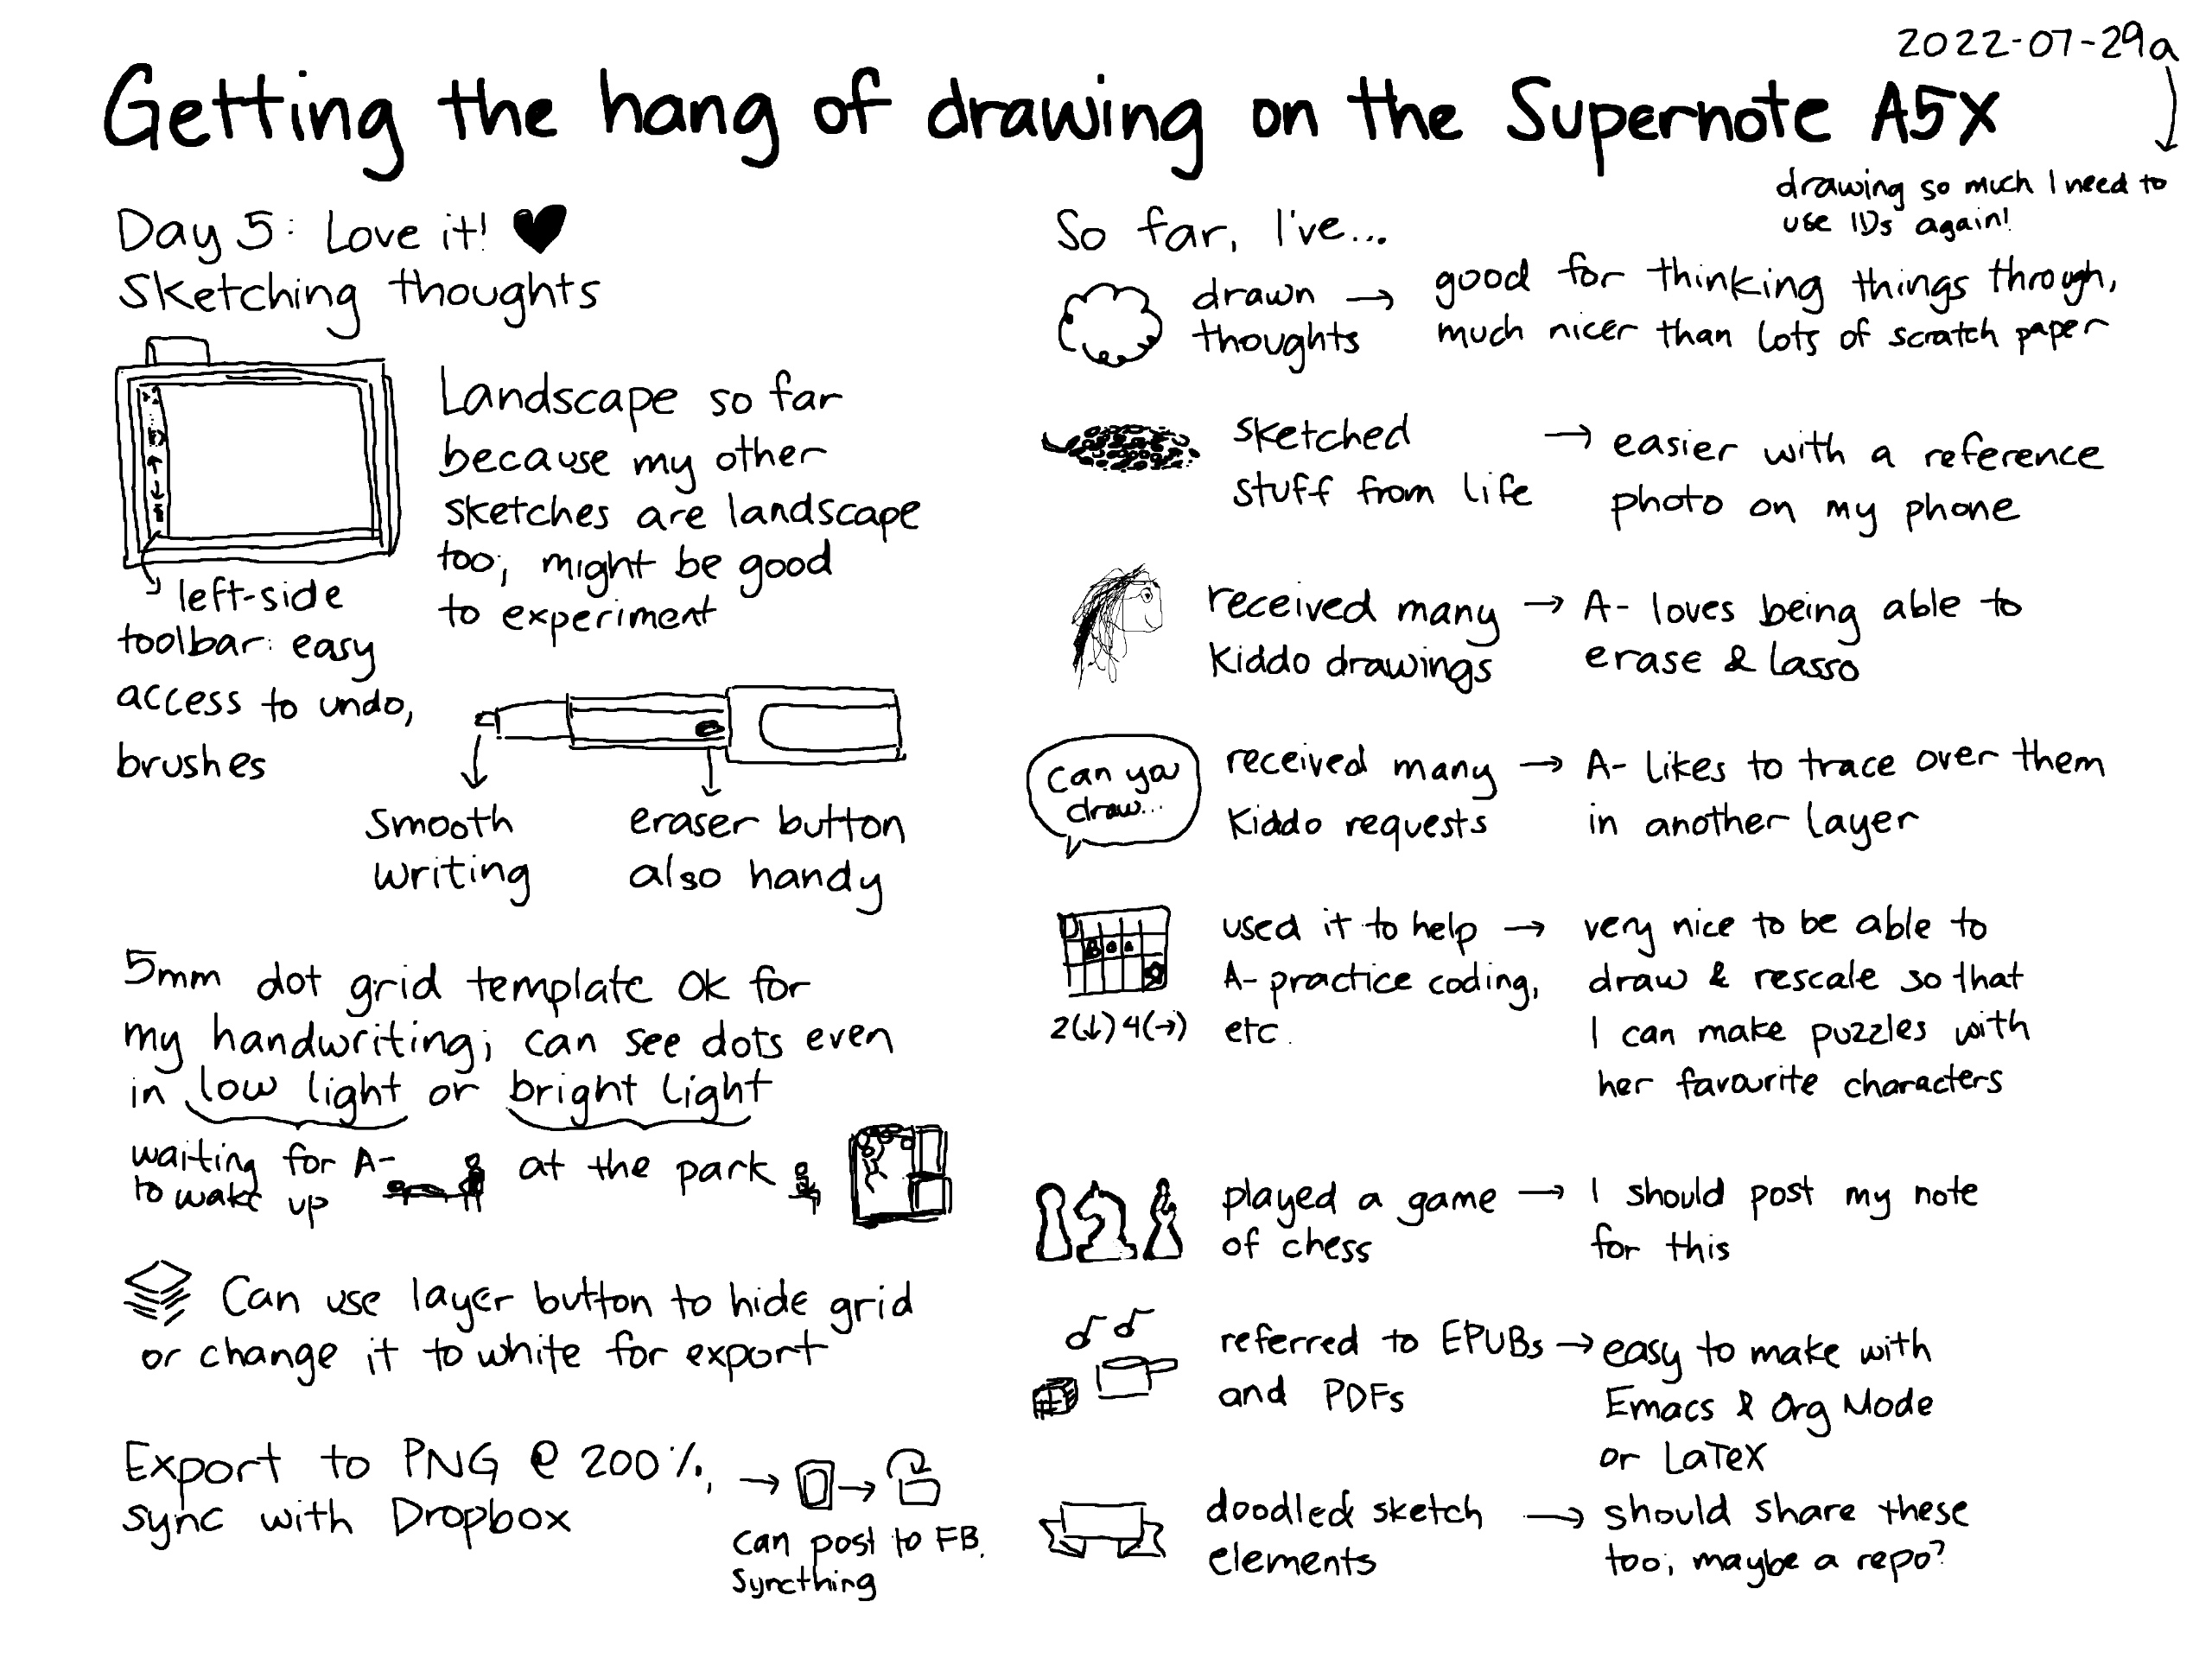 2022-07-29a
Getting the hang of drawing on the Supernote A5X
drawing so much I need to
use IDs again!
Day 5: Love it!
Sketching thoughts
Landscape so far
because my other
sketches are landscape
too; might be good
to experiment
left-side
toolbar: easy
access to undo,
brushes
smooth
writing
eraser button
also handy
5mm dot grid template OK for
my handwriting; can see dots even
in low light or bright light
waiting for A-
to wake up
at the park
Can use layer button to hide grid
or change it to white for export
Export to PNG @ 200%,
sync with Dropbox
can post to FB.
Syncthing
So far, I've...
drawn
thoughts
good for thinking things through,
much nicer than lots of scratch paper
sketched
stuff from life
easier with a reference
photo on my phone
received many
kiddo drawings
A- loves being able to
erase & lasso
can you
draw...
received many
kiddo requests
A- likes to trace over them
in another layer
2(↓) 4(→)
used it to help
A- practice coding,
etc.
very nice to be able to
draw & rescale so that
I can make puzzles with
her favourite characters
played a game
of chess
I should post my note
for this
referred to EPUBs
and PDFs
easy to make with
Emacs & Org Mode
or LaTeX
doodled sketch
elements
should share these
too; maybe a repo?